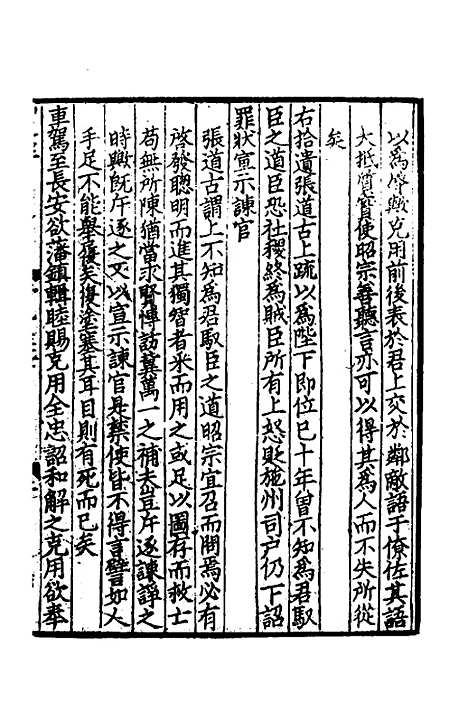 以為唇齒克用前後表於君上交於鄰敵語于僚佐其語
大抵質實使昭宗善聽言亦可以得其為人而不失所從
矣
右拾遺張道古上疏以為陛下即位已十年曾不知為君馭
臣之道臣恐社稷終為賊臣所有上怒貶施州司戶仍下詔
罪狀宣示諫官
張道古謂上不知為君馭臣之道昭宗宜召而問焉必有
啓發聰明而進其獨智者采而用之或足以圖存而救亡
苟無所陳猶當求賢博訪冀萬一之補夫豈斥逐諫諍之
時歟既斥逐之又以宣示諫官是禁使皆不得言譬如人
手足不能舉復矣復塗塞其耳目則有死而已矣
車駕至長安欲藩鎮輯睦賜克用全忠詔和解之克用欲奉